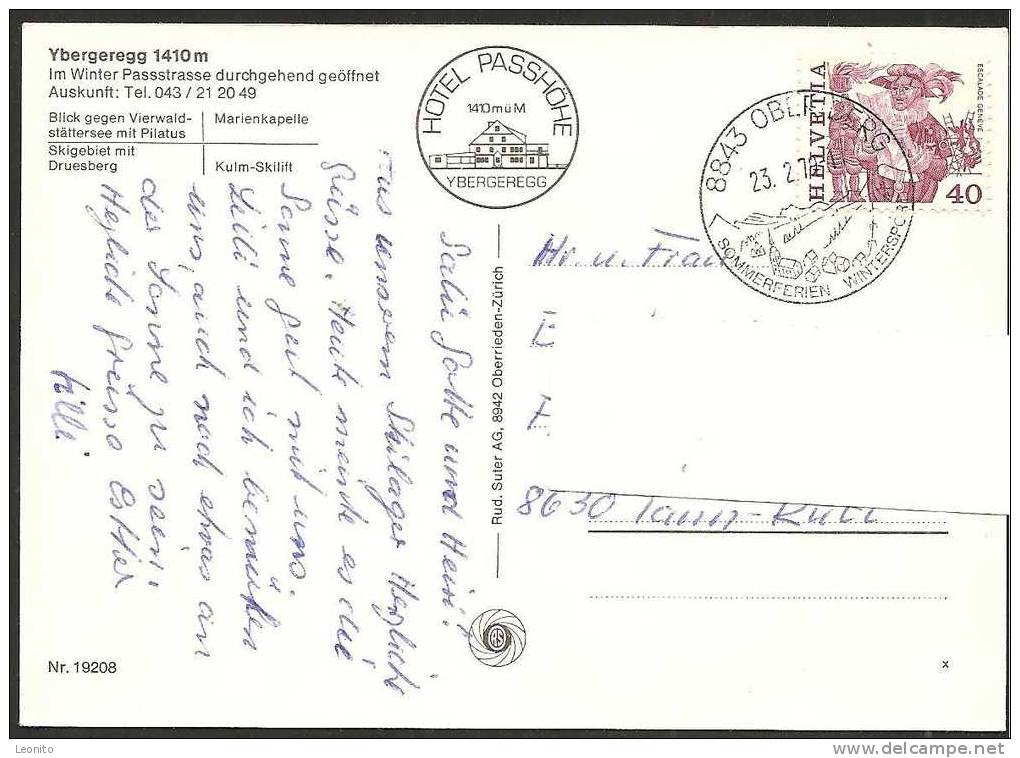 Ybergeregg 1410 m
Im Winter Passstrasse durchgehend geöffnet
Auskunft: Tel. 043 / 21 20 49
Blick gegen Vierwald-
stättersee mit Pilatus
Marienkapelle
Skigebiet mit
Druesberg
Kulm-Skilift
HOTEL PASSHÖHE
1410 mü M
YBERGEREGG
8843 OBERIBERG
23. 2. 7
SOMMERFERIEN WINTERSPOR
HELVETIA
ESCALADE GENÈVE
40
Salü und Heiri!
Aus unserem Skilager Herzliche
Grüsse. Heute meinte es die
Sonne gut mit uns.
und ich bemühen
uns, auch noch etwas an
der Sonne zu sein!
Herzliche Grüsse Esther
Hr. u. Frau
E
8630 Tann-Rüti
Rud. Suter AG, 8942 Oberrieden-Zürich
Nr. 19208
x
Leonito
www.delcampe.net